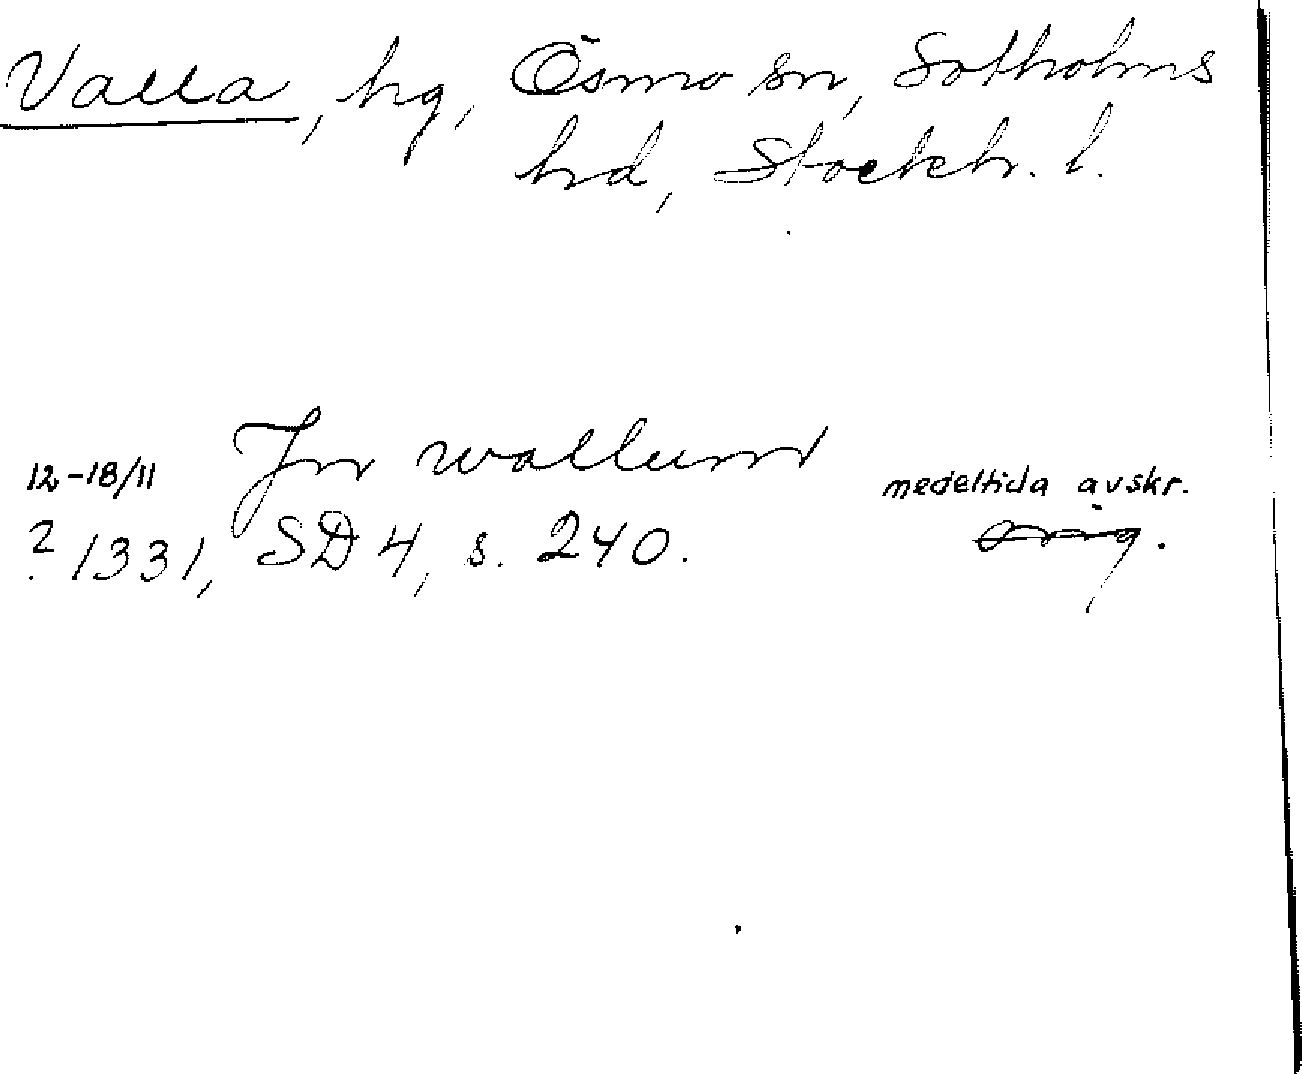 Valla, hg, Ösmo sn, Sotholms
hd, Stockh. l.
Jn wallum
12-18/11
medeltida avskr.
? 1331, SD 4, s. 240.
orig.